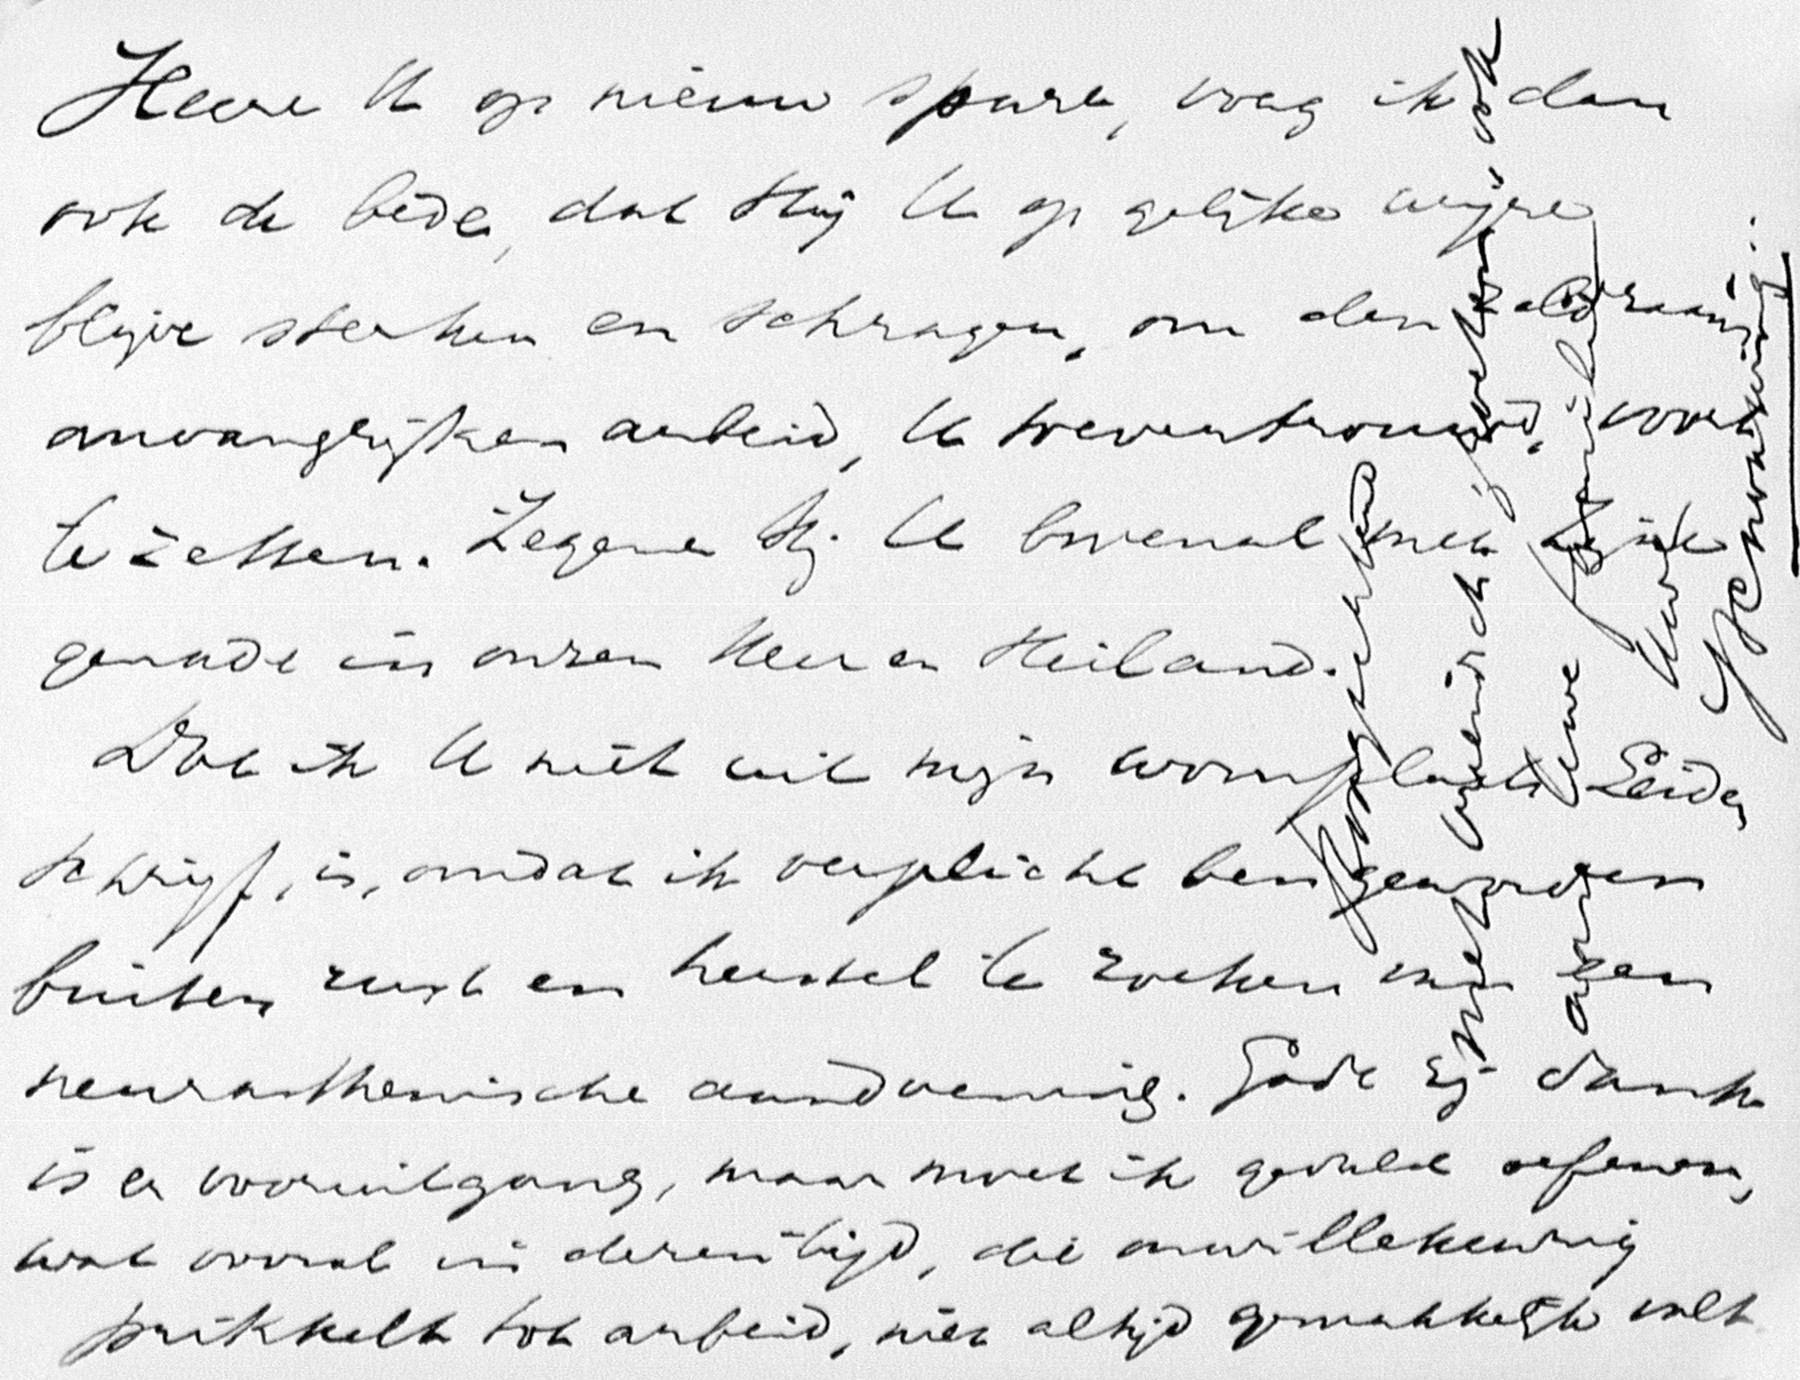 Heere U op nieuw spare, voeg ik dan
ook de bede, dat Hij U op gelijke wijze
blijve sterken en schragen, om den
omvangrijken arbeid, U toevertrouwd, voort
te zetten. Zegene Hij U bovenal met Zijne
genade in onzen Heer en Heiland.
Dat ik U niet uit mijn woonplaats Leiden
schrijf, is, omdat ik verplicht ben geworden
buiten rust en herstel te zoeken van een
neurasthenische aandoening. Gode zij dank
is er vooruitgang, maar moet ik geduld oefenen,
wat vooral in dezen tijd, die onwillekeurig
prikkelt tot arbeid, niet altijd gemakkelijk valt
Hoogachtend
met vriendelijke groeten ook
aan Uwe familie
Uw